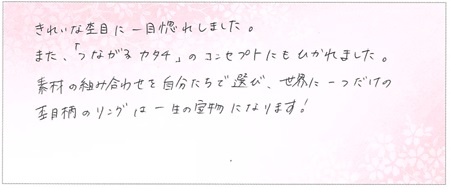 きれいな杢目に一目惚れしました。
また、「つながるカタチ」のコンセプトにもひかれました。
素材の組み合わせを自分たちで選び、世界に一つだけの
杢目柄のリングは一生の宝物になります!